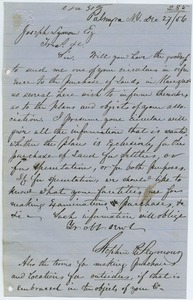 284
Palmyra N.Y. Dec 27/66
Joseph Lyman Esq
Sir. Will you have the goodness
to send me one of your circulars in regard
to the purchase of Lands in
as several here wish to inform themselves
as to the plans and objects of your asso-
ciation. I presume your circular will
give all the information that is wanted
whether the plan is Exclusively for the
purchase of Land for Settlers, or
for Speculation, or for both purposes.
If for speculation, we should like to
know what your facilities are for
making Examinations & purchases, &c
&c. Such information will oblige
Yr obt servt
Stephen P. Seymour
Also the terms for making purchases
and locations for outsiders, if that is
embraced in the objects of your